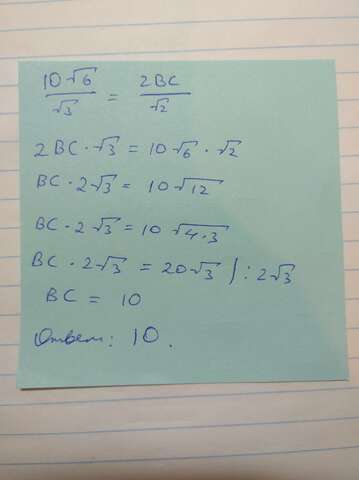 10√6/√3 = 2BC/√2
2BC·√3 = 10√6·√2
BC·2√3 = 10√12
BC·2√3 = 10√4·3
BC·2√3 = 20√3 / : 2√3
BC = 10
Ответ: 10.